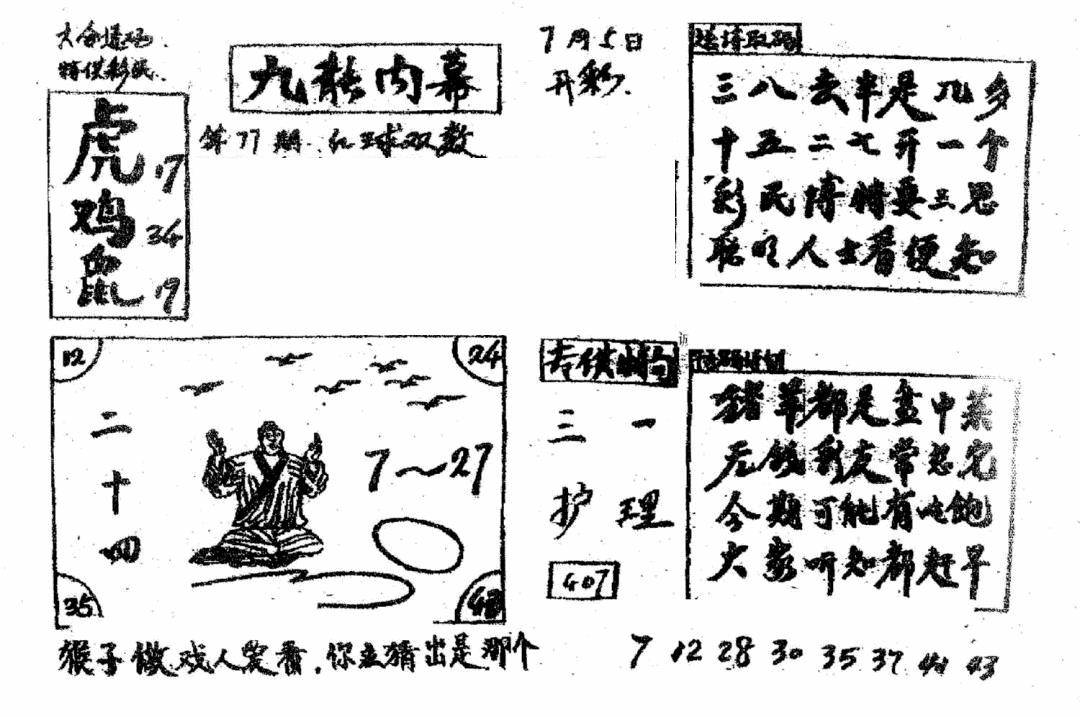 特供彩民
九龙内幕
7月5日
开彩.
第77期.红球双数
虎 17
鸡 34
鼠 19
三八去半是几多
十五二七开一个
彩民博特要三思
聪明人士看便知
12
24
二十四
7~27
35
专供特句
三一
护理
407
猪羊都是盘中菜
无钱彩友常忽它
今期可能有吃饱
大家听知都赶早
猴子做戏人笑看,你去猜出是那个
7 12 28 30 35 37 41 43